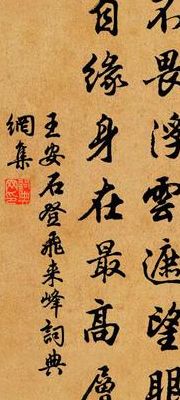 不畏浮雲遮望眼
自緣身在最高層
王安石登飛来峰詞典
網集